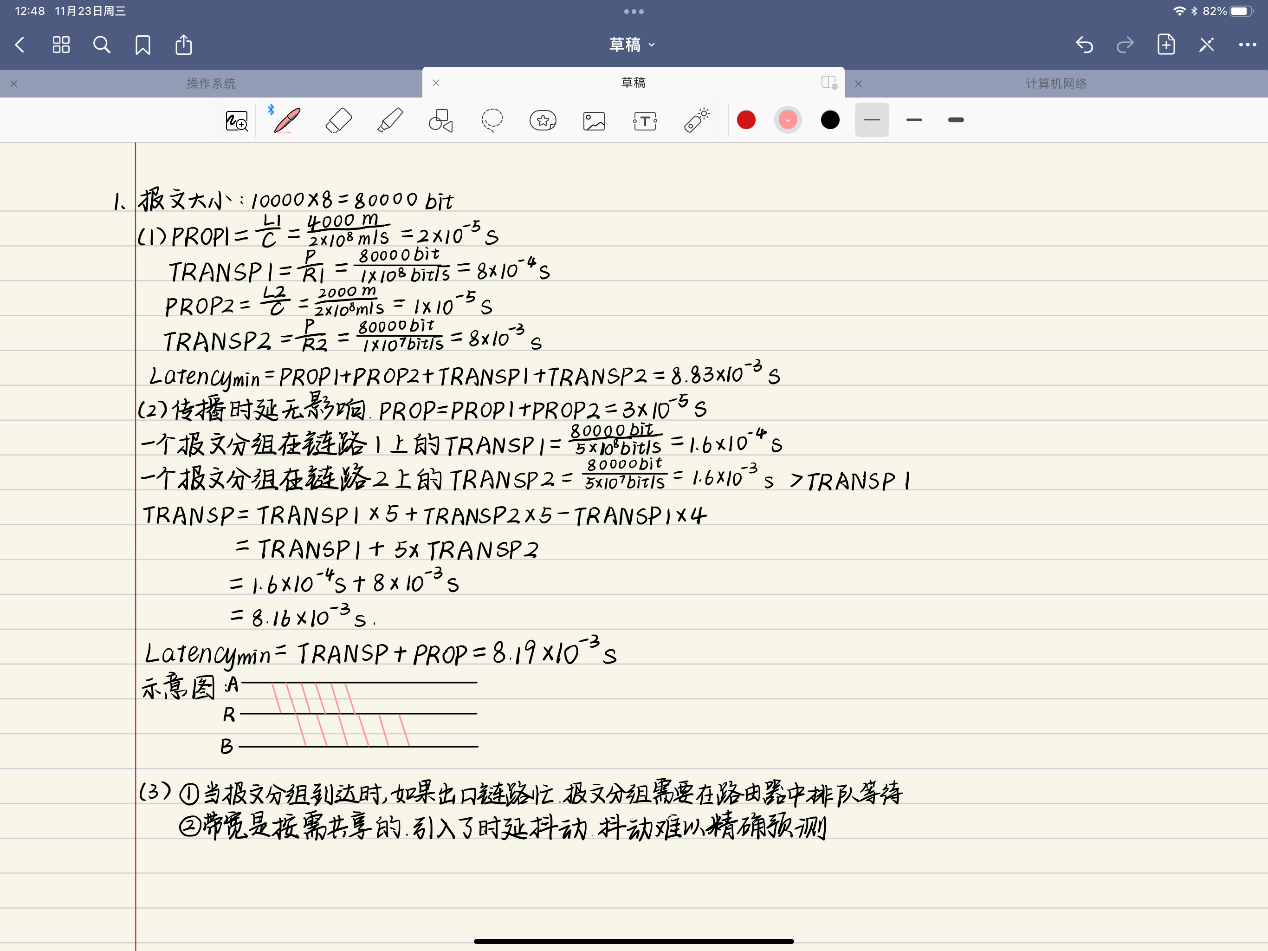 12:48 11月23日周三
82%
草稿
操作系统
草稿
计算机网络
1、报文大小:10000×8=80000 bit
(1) PROP1 = L1/C = 4000 m/2×10⁸ m/s = 2×10⁻⁵ s
TRANSP1 = P/R1 = 80000 bit/1×10⁸ bit/s = 8×10⁻⁴ s
PROP2 = L2/C = 2000 m/2×10⁸ m/s = 1×10⁻⁵ s
TRANSP2 = P/R2 = 80000 bit/1×10⁷ bit/s = 8×10⁻³ s
Latencymin = PROP1+PROP2+TRANSP1+TRANSP2 = 8.83×10⁻³ s
(2) 传播时延无影响. PROP=PROP1+PROP2=3×10⁻⁵ s
一个报文分组在链路1上的TRANSP1 = 80000 bit/5×10⁸ bit/s = 1.6×10⁻⁴ s
一个报文分组在链路2上的TRANSP2 = 80000 bit/5×10⁷ bit/s = 1.6×10⁻³ s >TRANSP1
TRANSP = TRANSP1×5+TRANSP2×5-TRANSP1×4
= TRANSP1 + 5×TRANSP2
= 1.6×10⁻⁴ s + 8×10⁻³ s
= 8.16×10⁻³ s.
Latencymin = TRANSP + PROP = 8.19×10⁻³ s
示意图:A
R
B
(3) ①当报文分组到达时,如果出口链路忙.报文分组需要在路由器中排队等待
②带宽是按需共享的.引入了时延抖动.抖动难以精确预测